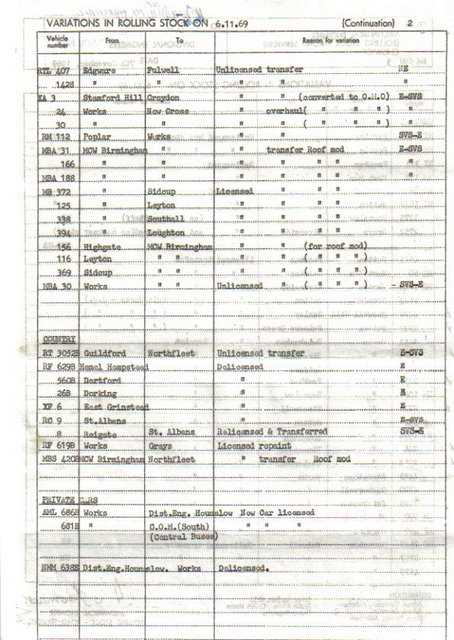 VARIATIONS IN ROLLING STOCK ON 6.11.69 (Continuation) 2
Vehicle number From To Reason for variation
RTL 407 Edgware Fulwell Unlicensed transfer E
1428 " " " " "
XA 3 Stamford Hill Croydon " " (converted to O.M.O) E-SVS
24 Works New Cross " overhaul( " " " )
30 " " " " ( " " " )
RM 112 Poplar Works " " SVS-E
MBA 31 MCW Birmingham " " transfer Roof mod E-SVS
166 " " " " " "
MBA 188 " " " " " "
MB 372 " Sidcup Licensed " " "
125 " Leyton " " " "
338 " Southall " " " "
394 " Loughton " " " "
156 Highgate MCW Birmingham " " (for roof mod)
116 Leyton " " " " ( " " " )
369 Sidcup " " " " ( " " " )
MBA 30 Works " " Unlicensed " ( " " " ) - SVS-E
COUNTRY
RT 3052B Guildford Northfleet Unlicensed transfer E-SVS
RF 629B Hemel Hempstead Delicensed E
560B Dartford " E
268 Dorking " E
XF 6 East Grinstead " E
RC 9 St.Albans " E-SVS
8 Reigate St. Albans Relicensed & Transferred SVS-E
RF 619B Works Grays Licensed repaint
MBS 420B MCW Birmingham Northfleet " transfer Roof mod
PRIVATE CARS
AML 686H Works Dist.Eng. Hounslow New Car licensed
681H " C.O.M.(South) " " "
(Central Buses)
NMM 638E Dist.Eng.Hounslow. Works Delicensed.